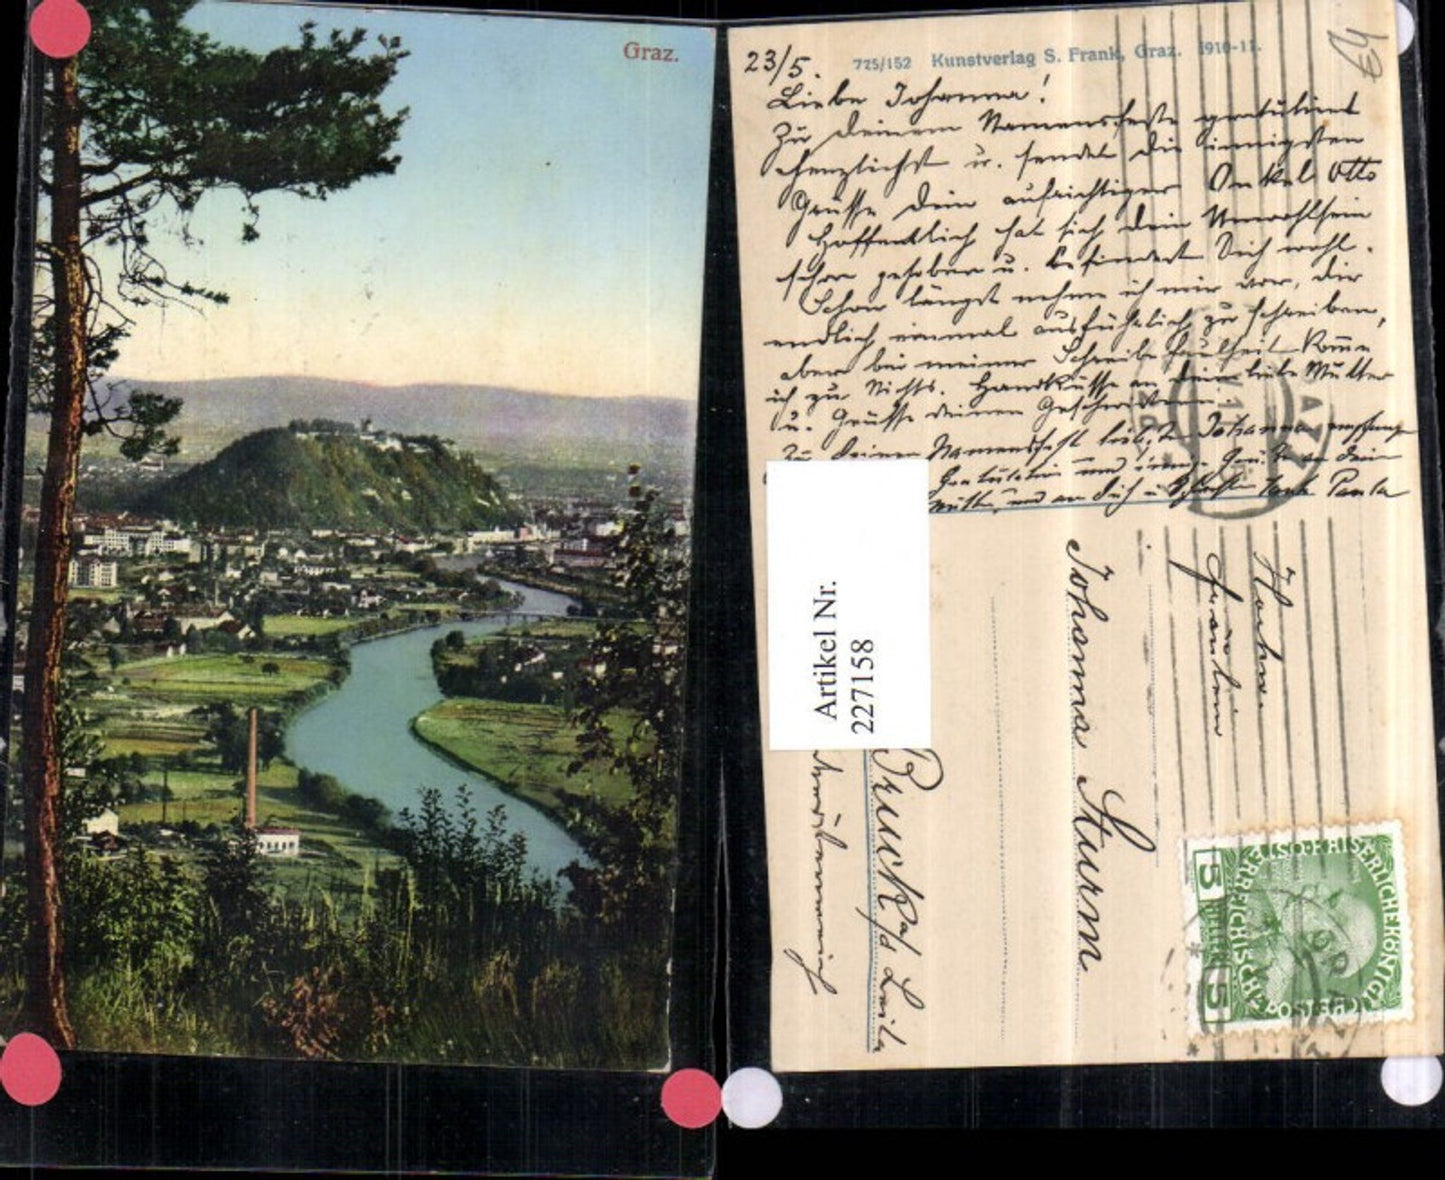 Graz.
725/152 Kunstverlag S. Frank, Graz. 1910-11.
23/5.
Liebe Johanna!
Zu Deinem Namensfeste gratuliert
herzlichst u. sendet die innigsten
Grüsse Dein aufrichtiger Onkel Otto
Hoffentlich hat sich Dein Unwohlsein
schon gehoben u. befindest Dich wohl.
Schon längst nehme ich mir vor, dir
endlich einmal ausführlich zu schreiben,
aber bei meiner Schreibfaulheit komme
ich zu Nichts. Handküsse an Deine liebe Mutter
u. Grüsse deinen Geschwistern.
Zu Deinem Namensfest liebste Johanna empfange
Gratulation und Grüße an Dein
Mutter, und an Dich Tante Paula
Artikel Nr.
227158
Fräulein
Johanna Sturm
Bruck a/d Leitha
5 5
KAISERLICHE KÖNIGL
ÖSTERREICHISCHE POST
GRAZ